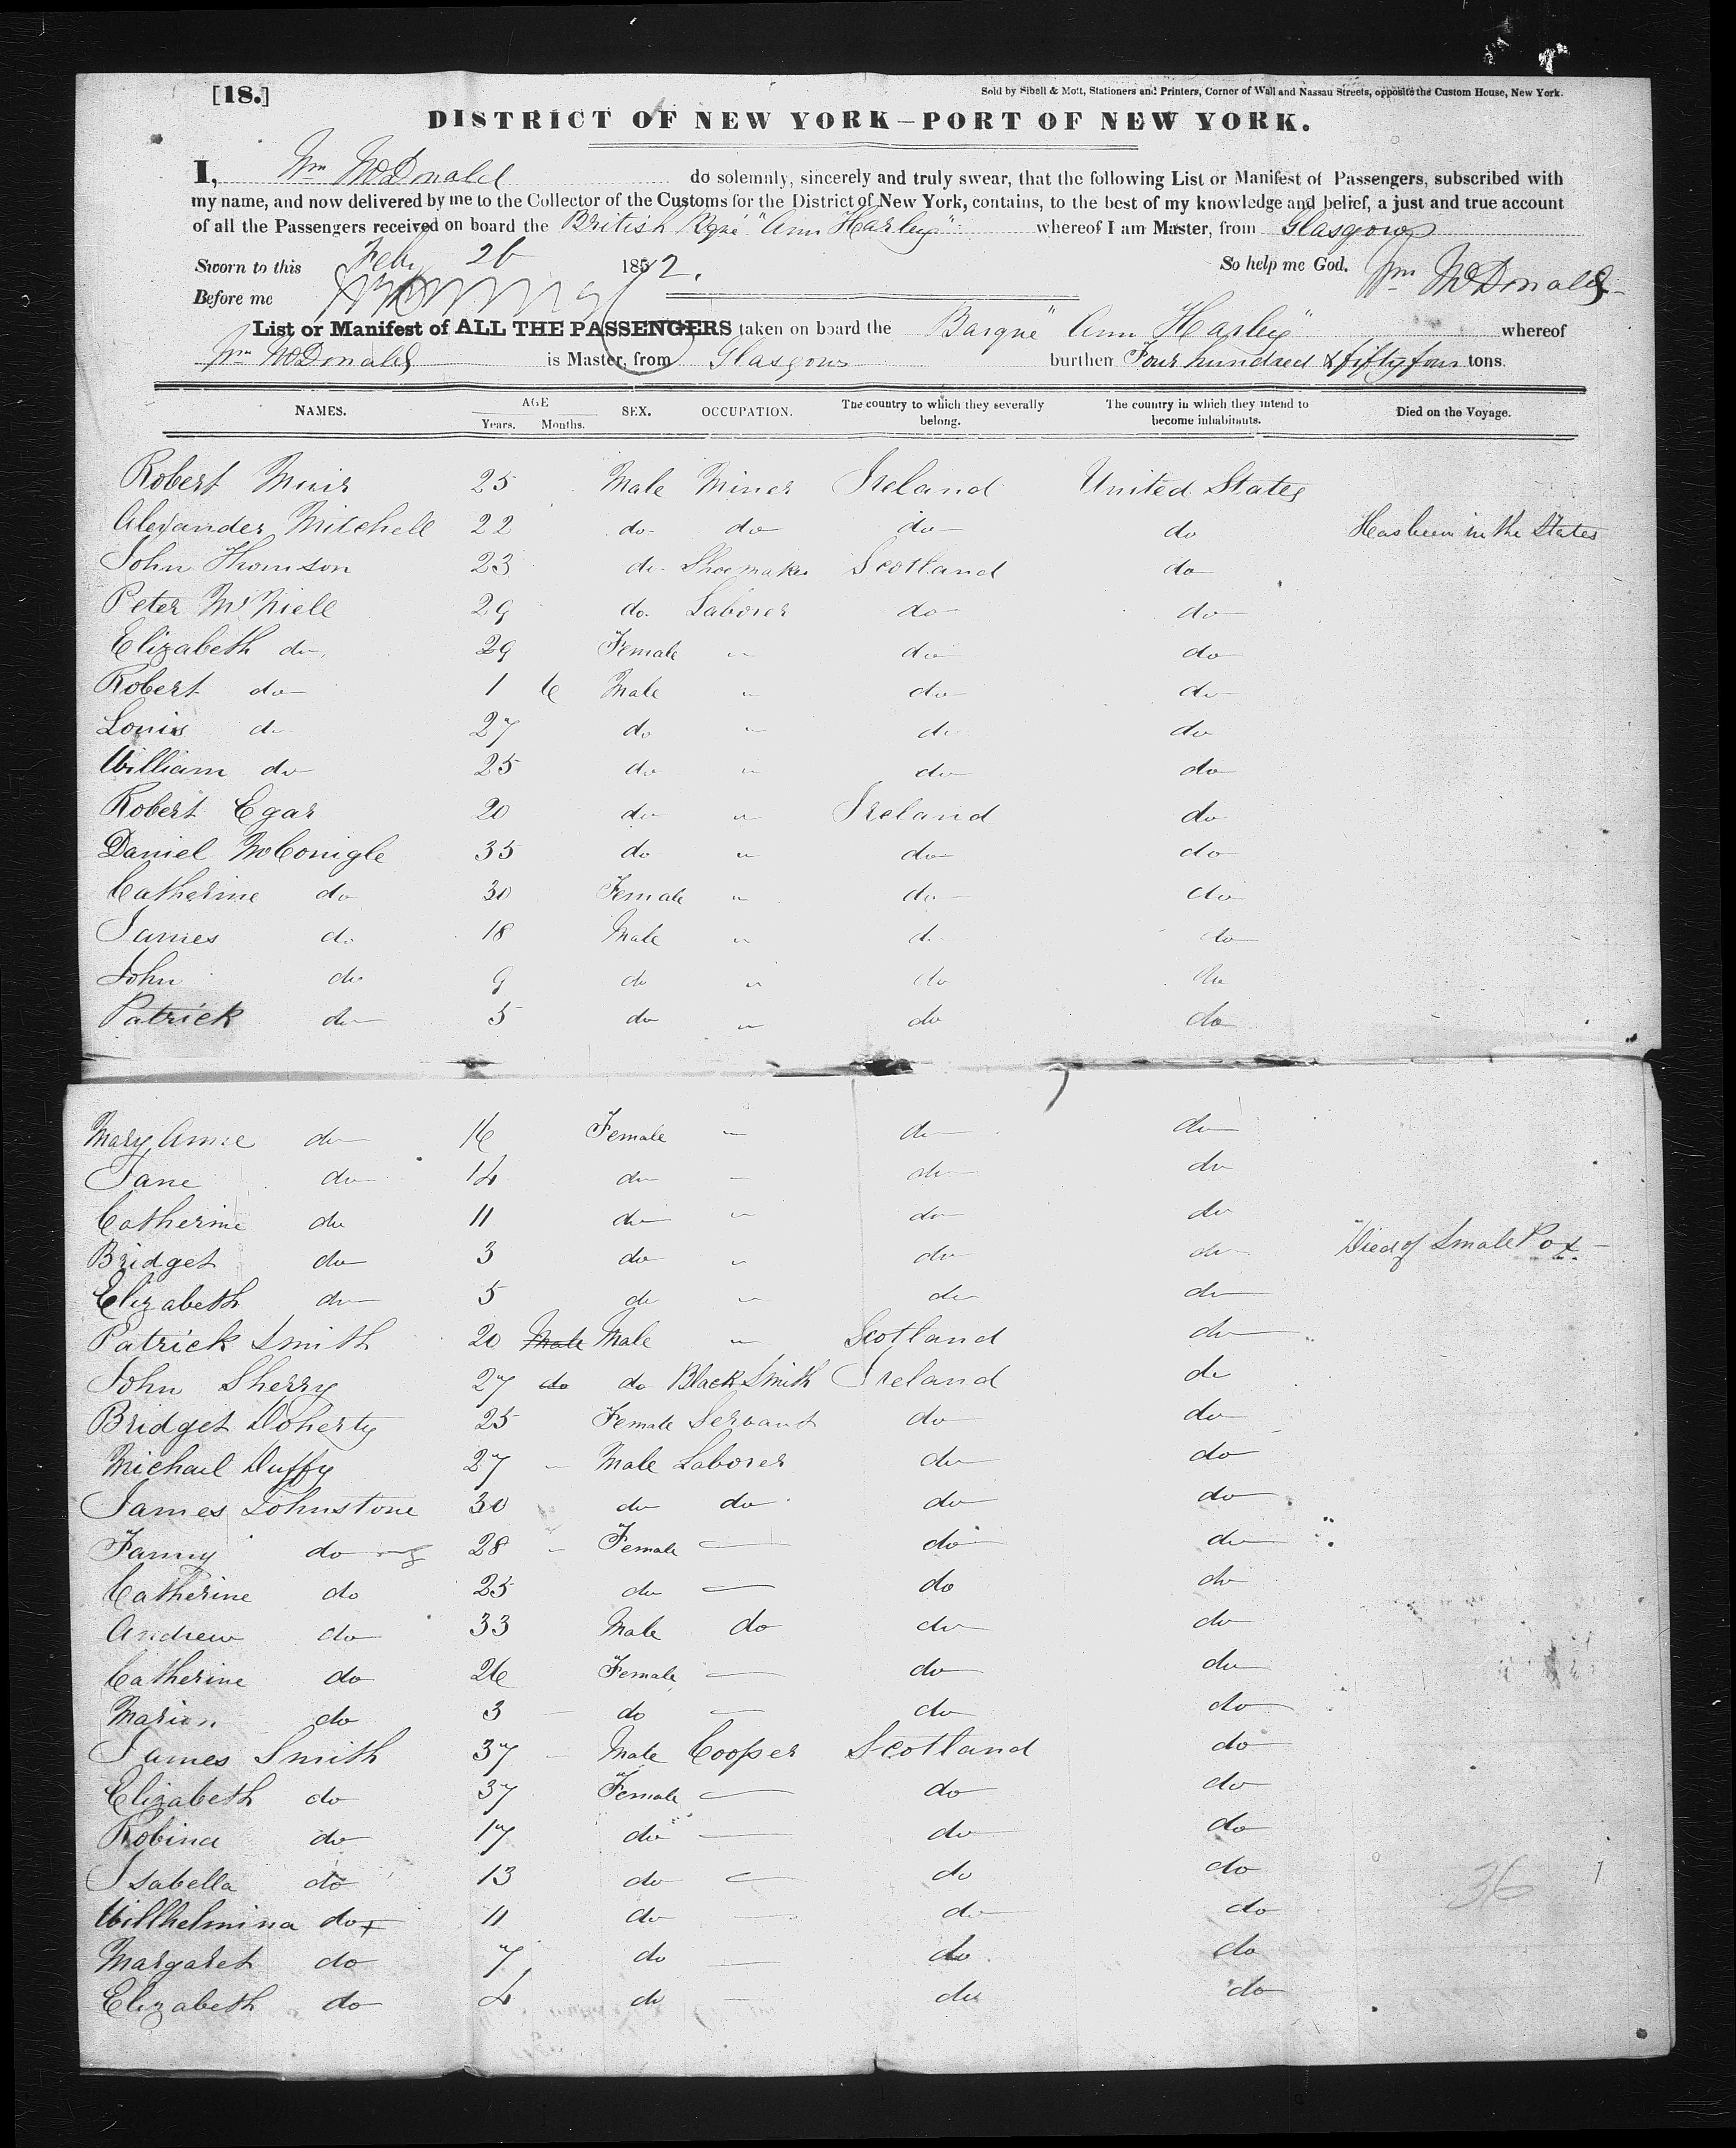 [18.]
Sold by Sibell & Mott, Stationers and Printers, Corner of Wall and Nassau Streets, opposite the Custom House, New York.
DISTRICT OF NEW YORK—PORT OF NEW YORK.
I, Wm McDonald do solemnly, sincerely and truly swear, that the following List or Manifest of Passengers, subscribed with
my name, and now delivered by me to the Collector of the Customs for the District of New York, contains, to the best of my knowledge and belief, a just and true account
of all the Passengers received on board the British Bque "Ann Harley" whereof I am Master, from Glasgow
Sworn to this Feby 26 1852. So help me God. Wm McDonald
Before me
List or Manifest of ALL THE PASSENGERS taken on board the Barque "Ann Harley" whereof
Wm McDonald is Master, from Glasgow burthen Four hundred & fifty four tons.
NAMES. AGE Years. Months. SEX. OCCUPATION. The country to which they severally belong. The country in which they intend to become inhabitants. Died on the Voyage.
Robert Muir 25 Male Miner Ireland United States
Alexander Mitchell 22 do do do do Has been in the States
John Thomson 23 do Shoemaker Scotland do
Peter McNiell 29 do Laborer do do
Elizabeth do 29 Female " do do
Robert do 1 6 Male " do do
Louis do 27 do " do do
William do 25 do " do do
Robert Egar 20 do " Ireland do
Daniel McConigle 35 do " do do
Catherine do 30 Female " do do
James do 18 Male " do do
John do 9 do " do do
Patrick do 5 do " do do
Mary Anne do 16 Female " do do
Jane do 14 do " do do
Catherine do 11 do " do do
Bridget do 3 do " do do Died of Small Pox
Elizabeth do 5 do " do do
Patrick Smith 20 Male Male " Scotland do
John Sherry 27 do do BlackSmith Ireland do
Bridget Doherty 25 Female Servant do do
Michael Duffy 27 Male Laborer do do
James Johnstone 30 do do do do
Fanny do 28 Female — do do
Catherine do 25 do — do do
Andrew do 33 Male do do do
Catherine do 26 Female — do do
Marion do 3 do — do do
James Smith 37 Male Cooper Scotland do
Elizabeth do 37 Female — do do
Robina do 17 do — do do
Isabella do 13 do — do do
Willhelmina do 11 do — do do
Margaret do 7 do — do do
Elizabeth do 4 do — do do
36